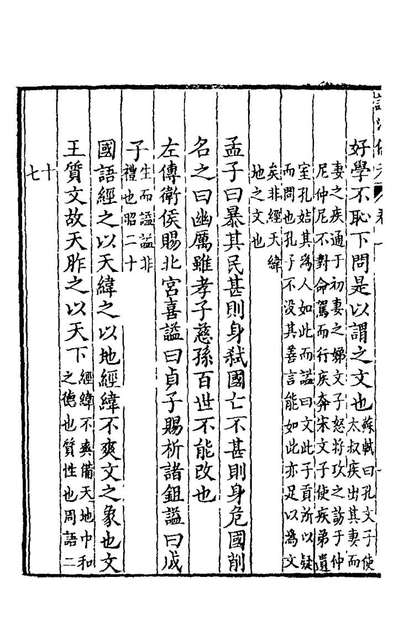 好學不恥下問是以謂之文也蘇軾曰孔文子使
太叔疾出其妻而
妻之疾通于初妻之娣文子怒將攻之訪于仲
尼仲尼不對命駕而行疾奔宋文子使疾弟遺
室孔姞其爲人如此而諡曰文此子貢所以疑
而問也孔子不没其善言能如此亦足以爲文
矣非經天緯
地之文也
孟子曰暴其民甚則身弑國亡不甚則身危國削
名之曰幽厲雖孝子慈孫百世不能改也
左傳衛侯賜北宫喜諡曰貞子賜析諸鉏諡曰成
子生而諡諡非
禮也昭二十
國語經之以天緯之以地經緯不爽文之象也文
王質文故天胙之以天下經緯不爽備天地中和
之德也質性也周語二
十
七